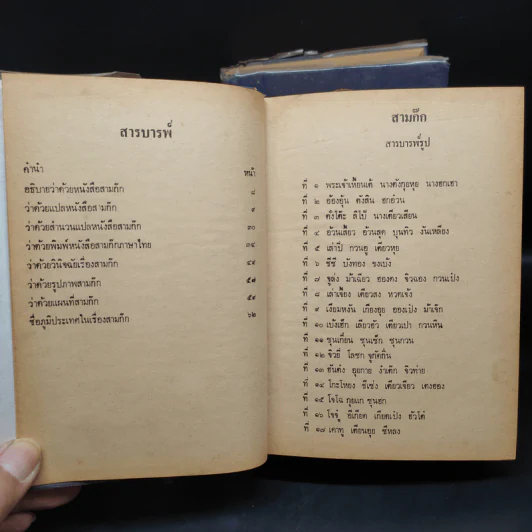 สารบารพ์
คำนำ หน้า
อธิบายว่าด้วยหนังสือสามก๊ก ๘
ว่าด้วยแปลหนังสือสามก๊ก ๙
ว่าด้วยสำนวนแปลหนังสือสามก๊ก ๓๐
ว่าด้วยพิมพ์หนังสือสามก๊กภาษาไทย ๓๔
ว่าด้วยวินิจฉัยเรื่องสามก๊ก ๔๔
ว่าด้วยรูปภาพสามก๊ก ๕๗
ว่าด้วยแผนที่สามก๊ก ๕๙
ชื่อภูมิประเทศในเรื่องสามก๊ก ๖๒
สามก๊ก
สารบารพ์รูป
ที่ ๑ พระเจ้าเหี้ยนเต้ นางตังกุยหุย นางฮกเฮา
ที่ ๒ อ้องอุ้น ตังสิน ฮกอ้วน
ที่ ๓ ตั๋งโต๊ะ ลิโป้ นางเตียวเสียน
ที่ ๔ อ้วนเสี้ยว อ้วนสุด บุนทิว งันเหลียง
ที่ ๕ เล่าปี่ กวนอู เตียวหุย
ที่ ๖ ชีซี บังทอง ขงเบ้ง
ที่ ๗ จูล่ง ม้าเฉียว ฮองตง จิวฉอง กวนเป๋ง
ที่ ๘ เล่าเจี้ยง เตียวสง หวดเจ้ง
ที่ ๙ เงียมหงัน เกียงอุย อองเป๋ง ม้าเจ๊ก
ที่ ๑๐ เบ้งเฮ็ก เลียวฮัว เตียวเปา กวนหิน
ที่ ๑๑ ซุนเกี๋ยน ซุนเซ็ก ซุนกวน
ที่ ๑๒ จิวยี่ โลซก จูกัดกิ๋น
ที่ ๑๓ ฮันต๋ง อุยกาย งำเต๊ก จิวท่าย
ที่ ๑๔ โกะหอง ชีเซ่ง เตียวเจียว เตงฮอง
ที่ ๑๕ โจโฉ กุยแก ซุนฮก
ที่ ๑๖ โจจู๋ ยี่เกียด เกียดเป๋ง ฮัวโต๋
ที่ ๑๗ เคาทู เตียนอุย ชีหลง